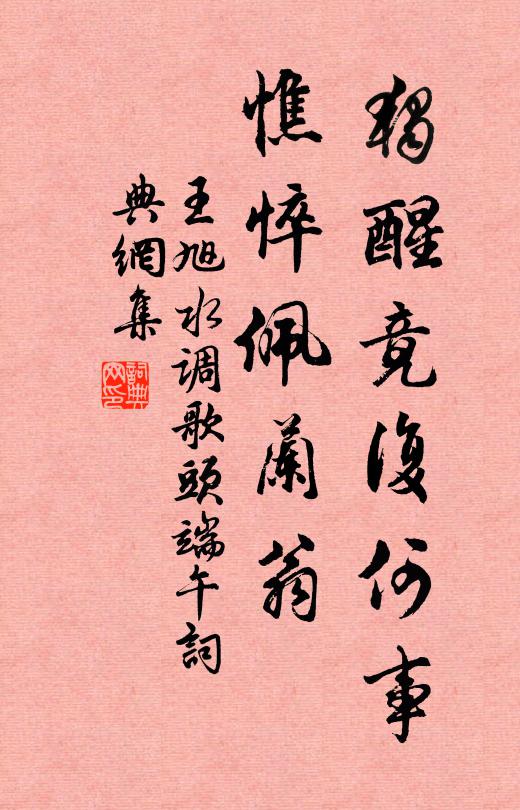 獨醒竟復何事
憔悴佩蘭翁
王旭水调歌頭端午詞
典網集
詞典
网印